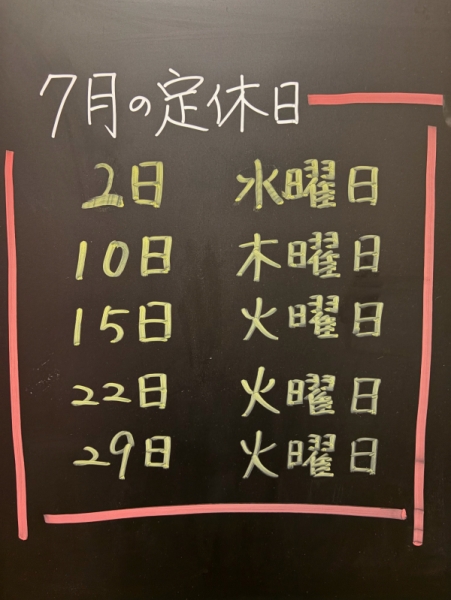 7月の定休日
2日 水曜日
10日 木曜日
15日 火曜日
22日 火曜日
29日 火曜日